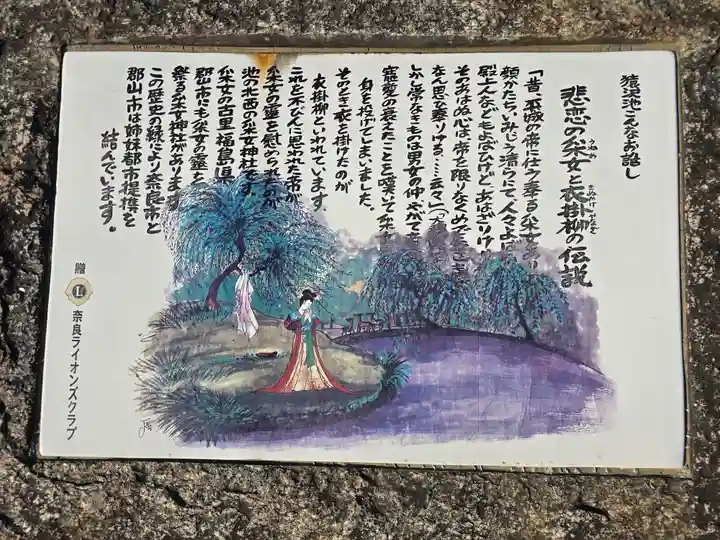 猿沢池こんなお話し
悲恋の采女と衣掛柳の伝説
うねめ
きぬかけやなぎ
「昔、平城の帝に仕う奉る采女あり
顔かたちいみじう清らにて、人々よばひ
殿上人などもよばひけど、あはざりけり。
そのあはぬ心は、帝を限りなくめでたき
な人思ひ奉りける・・・云々」(
しかし常なきものは男女の仲、やがて
寵愛の衰えたことを嘆いて采
身を投げてしまいました。
そのとき衣を掛けたのが
衣掛柳といわれています。
これを不びんに思われた帝が
采女の霊を慰められたのが
池の北西の采女神社です。
采女の古里福島
郡山市にも采女の霊を
祭る采女神社があります
この歴史の縁により奈良市と
郡山市は姉妹都市提携を
結んでいます。
贈 L 奈良ライオンズクラブ